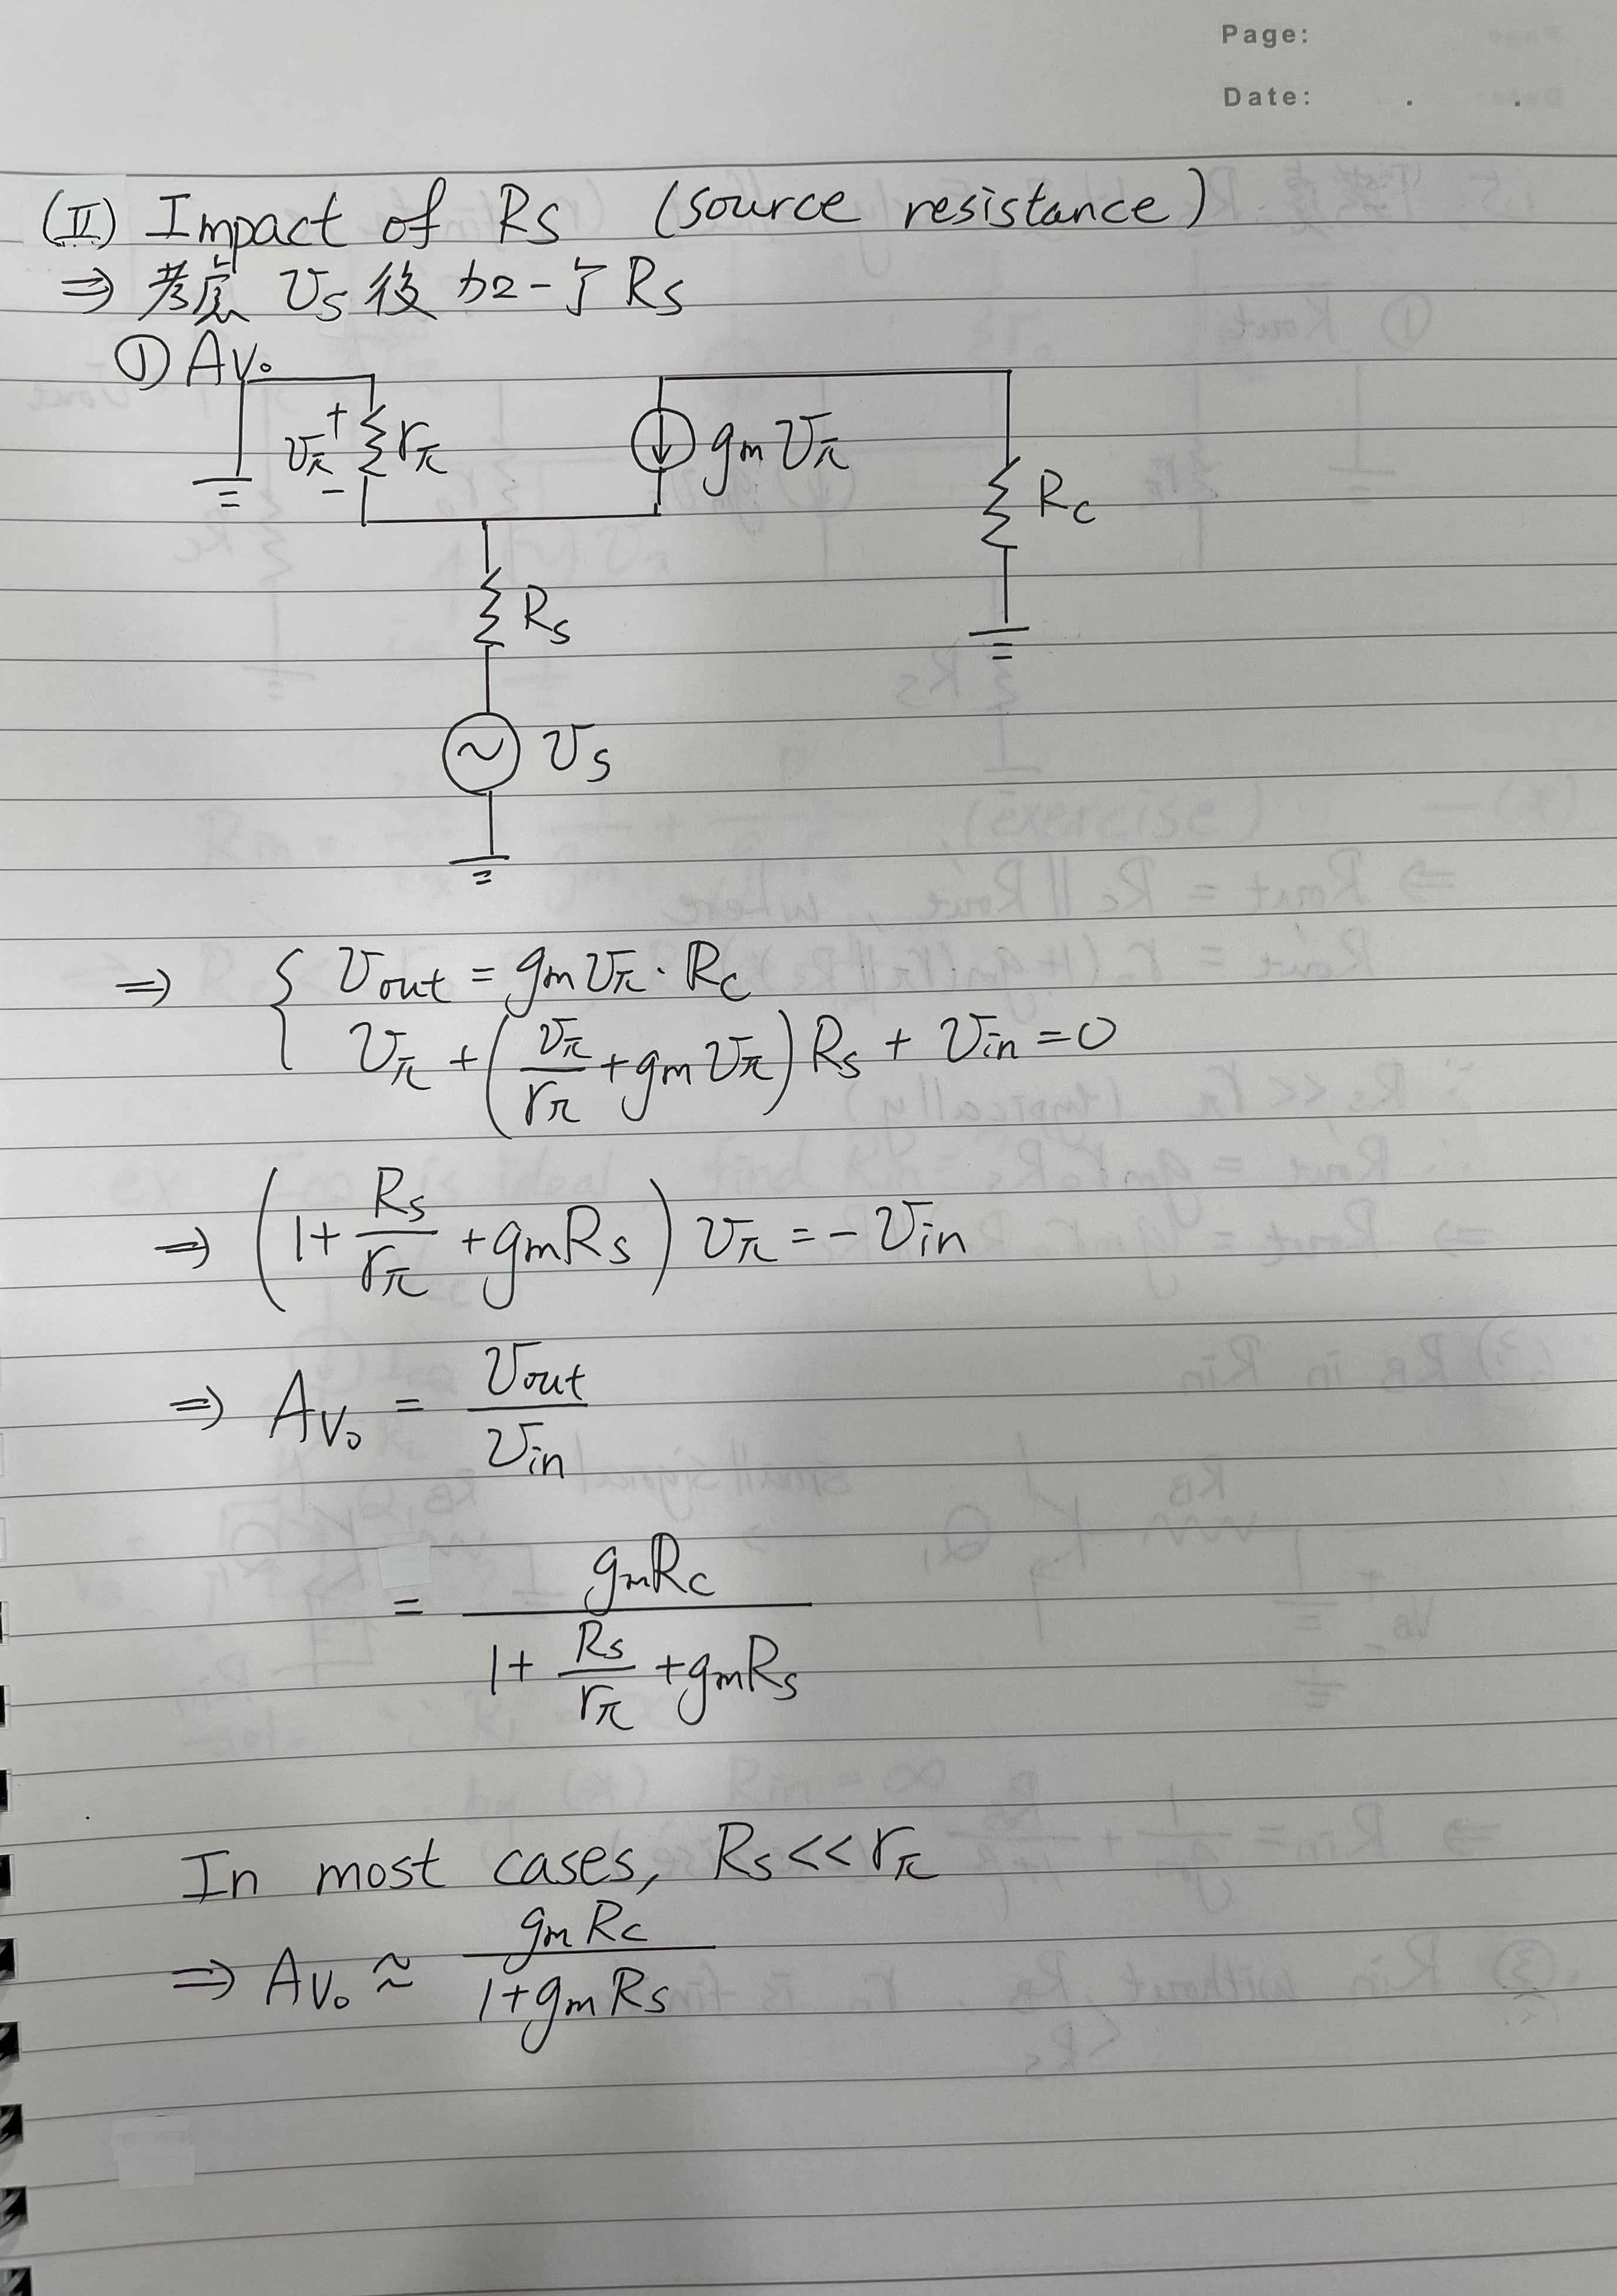 Page:
Date: . .
(II) Impact of Rs (source resistance)
⇒ 考慮 Vs 後加一个 Rs
① Av₀
Vπ + - rπ gmVπ Rc
Rs
Vs
⇒ { Vout = gmVπ · Rc
Vπ + (Vπ/rπ + gmVπ) Rs + Vin = 0
⇒ (1 + Rs/rπ + gmRs) Vπ = - Vin
⇒ Av₀ = Vout/Vin
= gmRc / (1 + Rs/rπ + gmRs)
In most cases, Rs << rπ
⇒ Av₀ ≈ gmRc / (1 + gmRs)